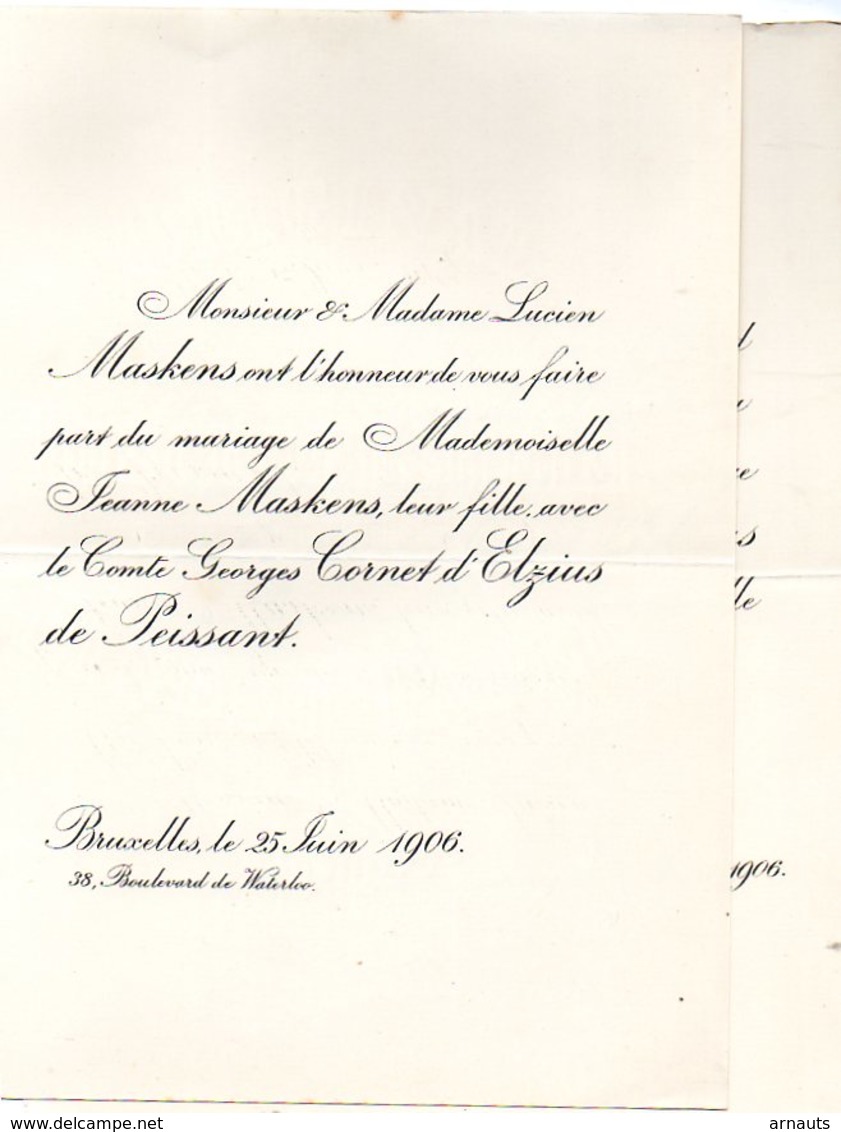 Monsieur & Madame Lucien
Maskens ont l'honneur de vous faire
part du mariage de Mademoiselle
Jeanne Maskens, leur fille, avec
le Comte Georges Cornet d'Elzius
de Peissant.
Bruxelles, le 25 Juin 1906.
38, Boulevard de Waterloo.
1906.
www.delcampe.net
arnauts